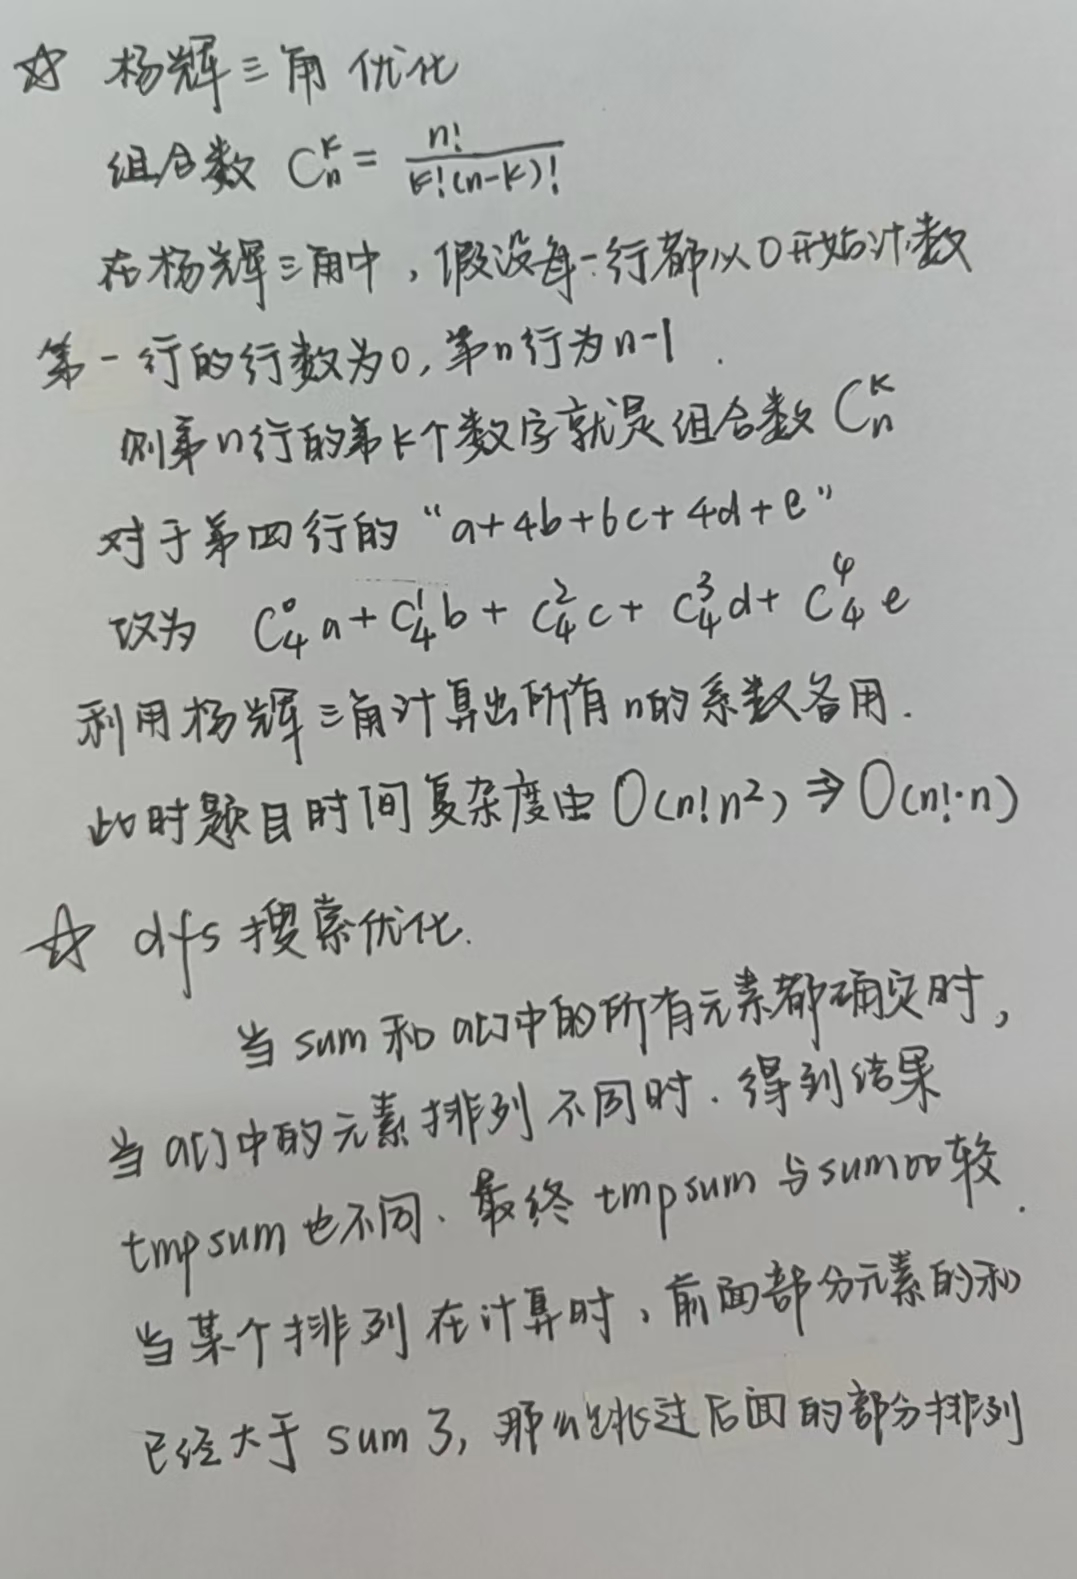 ☆ 杨辉三角优化
组合数 C_n^k = n! / k!(n-k)!
在杨辉三角中，假设每一行都以0开始计数
第一行的行数为0, 第n行为n-1.
则第n行的第k个数字就是组合数 C_n^k
对于第四行的“a+4b+6c+4d+e”
改为 C_4^0 a + C_4^1 b + C_4^2 c + C_4^3 d + C_4^4 e
利用杨辉三角计算出所有n的系数备用.
此时题目时间复杂度由 O(n!n²) ⇒ O(n!·n)
☆ dfs 搜索优化.
当 sum 和 a[]中的所有元素都确定时,
当 a[]中的元素排列不同时. 得到结果
tmpsum 也不同、最终 tmpsum 与sum比较.
当某个排列在计算时，前面部分元素的和
已经大于 sum 了, 那么跳过后面的部分排列